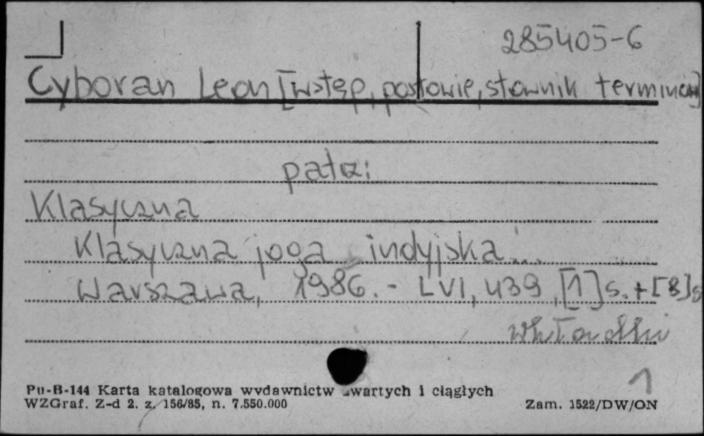 285405-6
Cyboran Leon [wstęp, posłowie, słownik terminów]
patrz:
Klasyczna
Klasyczna joga indyjska...
Warszawa, 1986. - LVI, 439, [1] s. + [8] s
wkł. o okł.
1
Pu-B-144 Karta katalogowa wydawnictw zwartych i ciągłych
WZGraf. Z-d 2. z. 156/85, n. 7.550.000
Zam. 1522/DW/ON